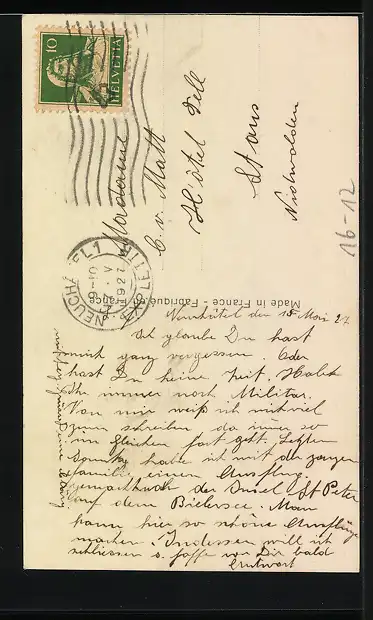 10
HELVETIA
NEUCHÂTEL 1
LETTRES
17. V
1927
Madame
C. v. Matt
Hôtel Tell
Stans
Nidwalden
16-12
Made in France - Fabriqué en France
Neuchâtel den 15 Mai 27
Ich glaube Du hast
mich ganz vergessen. Oder
hast Du keine Zeit. Habet
Ihr immer noch Militär.
Von mir weiß ich nicht viel
zum schreiben da immer so
im gleichen fort geht. Letzten
Sonntag habe ich mit der ganzen
Familie einen Ausflug
gemacht nach der Insel St Peter
auf dem Bielersee. Man
kann hier so schöne Ausflüge
machen. Indessen will ich
schliessen u. hoffe von Dir bald
Antwort